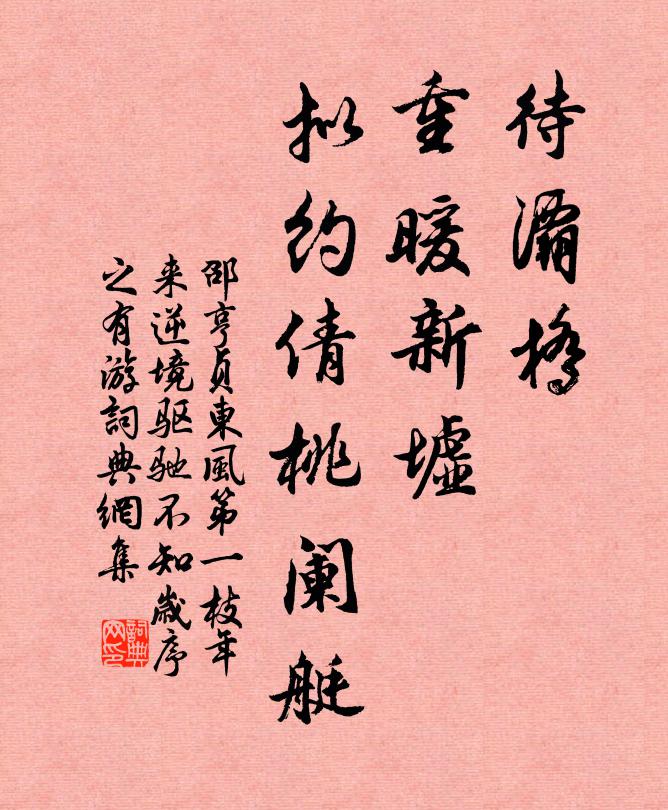 待灞桥
重暖新墟
拟约倩桃阑艇
邵亨贞東風第一枝年
来逆境驱驰不知歲序
之有游詞典網集
詞典网印